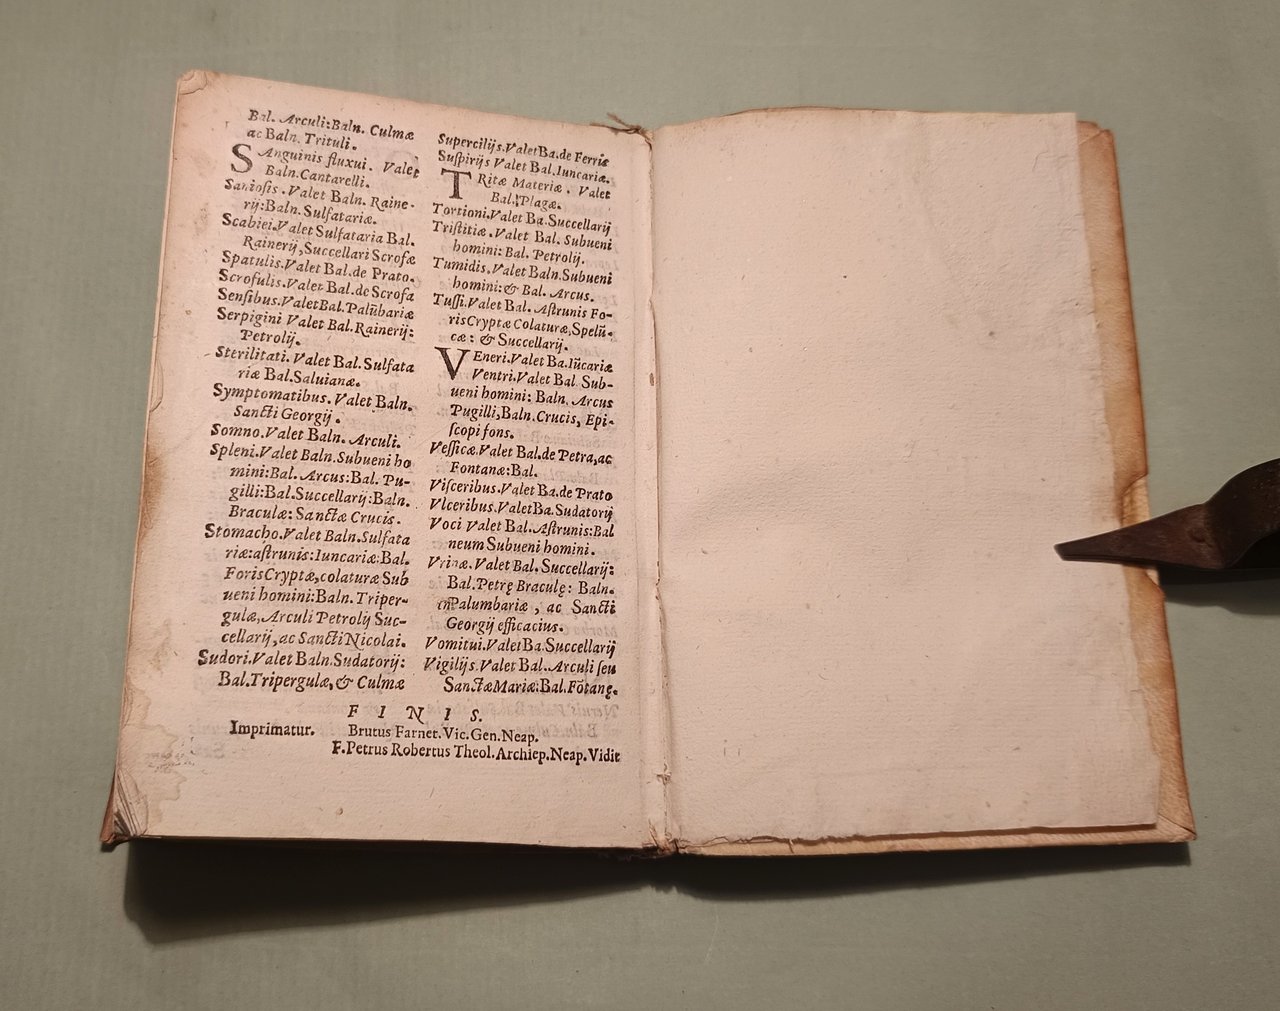 Bal. Arculi: Baln. Culmæ
ac Baln. Trituli.
Sanguinis fluxui. Valet
Baln. Cantarelli.
Saniosis. Valet Baln. Raine-
rij: Baln. Sulfatariæ.
Scabiei. Valet Sulfataria Bal.
Rainerij, Succellari Scrofæ
Spatulis. Valet Bal. de Prato.
Scrofulis. Valet Bal. de Scrofa
Sensibus. Valet Bal. Palūbariæ
Serpigini Valet Bal. Rainerij:
Petrolij.
Sterilitati. Valet Bal. Sulfata
riæ Bal. Saluianæ.
Symptomatibus. Valet Baln.
Sancti Georgij.
Somno. Valet Baln. Arculi.
Spleni. Valet Baln. Subueni ho
mini: Bal. Arcus: Bal. Pu-
gilli: Bal. Succellarij: Baln.
Braculæ: Sanctæ Crucis.
Stomacho. Valet Baln. Sulfata
riæ: astrunis: Iuncariæ: Bal.
Foris Cryptæ, colaturæ Sub
ueni homini: Baln. Triper-
gulæ, Arculi Petrolij Suc-
cellarij, ac Sancti Nicolai.
Sudori. Valet Baln. Sudatorij:
Bal. Tripergulæ, & Culmæ
Supercilijs. Valet Ba. de Ferris
Suspirijs Valet Bal. Iuncariæ.
TRitæ Materiæ. Valet
Bal. Plagæ.
Tortioni. Valet Ba. Succellarij
Tristitiæ. Valet Bal. Subueni
homini: Bal. Petrolij.
Tumidis. Valet Baln. Subueni
homini: & Bal. Arcus.
Tussi. Valet Bal. Astrunis Fo-
ris Cryptæ Colaturæ, Spelū-
cæ: & Succellarij.
VEneri. Valet Ba. Iūcariæ
Ventri. Valet Bal Sub-
ueni homini: Baln. Arcus
Pugilli, Baln. Crucis, Epi-
scopi fons.
Vesficæ. Valet Bal. de Petra, ac
Fontanæ: Bal.
Visceribus. Valet Ba. de Prato
Vlceribus. Valet Ba. Sudatorij
Voci Valet Bal. Astrunis: Bal
neum Subueni homini.
Vrinæ. Valet Bal. Succellarij:
Bal. Petrę Braculę: Baln.
Palumbariæ, ac Sancti
Georgij efficacius.
Vomitui. Valet Ba. Succellarij
Vigilijs. Valet Bal. Arculi seu
Sanctæ Mariæ: Bal. Fōtanę.
F I N I S.
Imprimatur. Brutus Farnet. Vic. Gen. Neap.
F. Petrus Robertus Theol. Archiep. Neap. Vidit